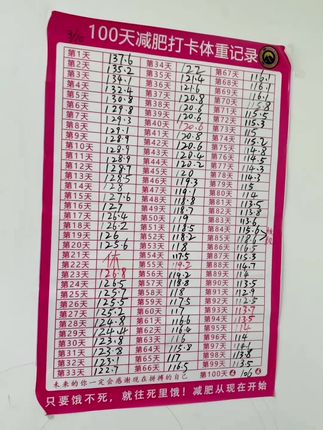 100天减肥打卡体重记录
第1天 137.6
第2天 135.2
第3天 134.1
第4天 132.4
第5天 130.8
第6天 129.8
第7天 129.3
第8天 129.1
第9天 129
第10天 128.9
第11天 128.9
第12天 128.7
第13天 128.5
第14天 128
第15天 127.6
第16天 127
第17天 126.4
第18天 126.2
第19天 126
第20天 125.6
第21天 休
第22天
第23天 126.8
第24天 126.5
第25天 125.7
第26天 125.5
第27天 125.2
第28天 124.8
第29天 124.4
第30天 123.8
第31天 123.8
第32天 123.1
第33天 122.7
第34天 122
第35天 121.4
第36天 121.6
第37天 120.8
第38天 120.6
第39天 120.8
第40天 120.6
第41天 120.8
第42天 120.6
第43天 120.4
第44天 120.2
第45天 120
第46天 119.3
第47天 119.1
第48天 118.8
第49天 118.7
第50天
第51天
第52天 118.2
第53天 118
第54天 117.5
第55天 119.2
第56天 119.2
第57天 118.4
第58天 118
第59天 118
第60天 117
第61天 117
第62天
第63天
第64天
第65天 117
第66天 116.5
第67天 116.1
第68天
第69天 116.1
第70天
第71天 115.5
第72天 115.5
第73天 115
第74天 115.2
第75天 114.8
第76天 114.5
第77天 114.3
第78天 114.3
第79天 114
第80天 114
第81天 113.5
第82天 113.8
第83天 113.6
第84天 115.6
第85天
第86天 115.5
第87天 115.3
第88天 114.7
第89天 114
第90天 113.5
第91天 112.9
第92天 112.5
第93天 113.7
第94天 113.5
第95天 114
第96天 114
第97天 114
第98天 113.9
第99天 113.5
第100天
未来的你一定会感谢现在拼搏的自己
只要饿不死，就往死里饿！减肥从现在开始